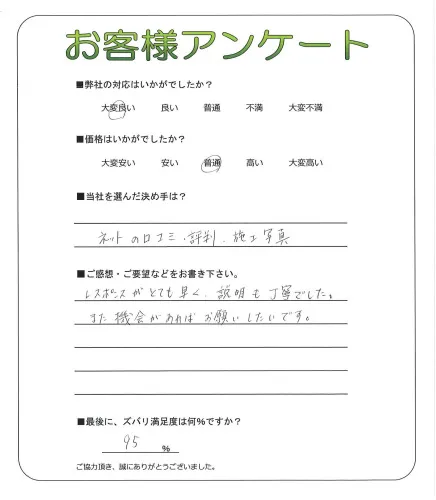 お客様アンケート
■弊社の対応はいかがでしたか？
大変良い 良い 普通 不満 大変不満
■価格はいかがでしたか？
大変安い 安い 普通 高い 大変高い
■当社を選んだ決め手は？
ネットの口コミ、評判、施工写真
■ご感想・ご要望などをお書き下さい。
レスポンスがとても早く、説明も丁寧でした。
また機会があればお願いしたいです。
■最後に、ズバリ満足度は何%ですか？
95 %
ご協力頂き、誠にありがとうございました。